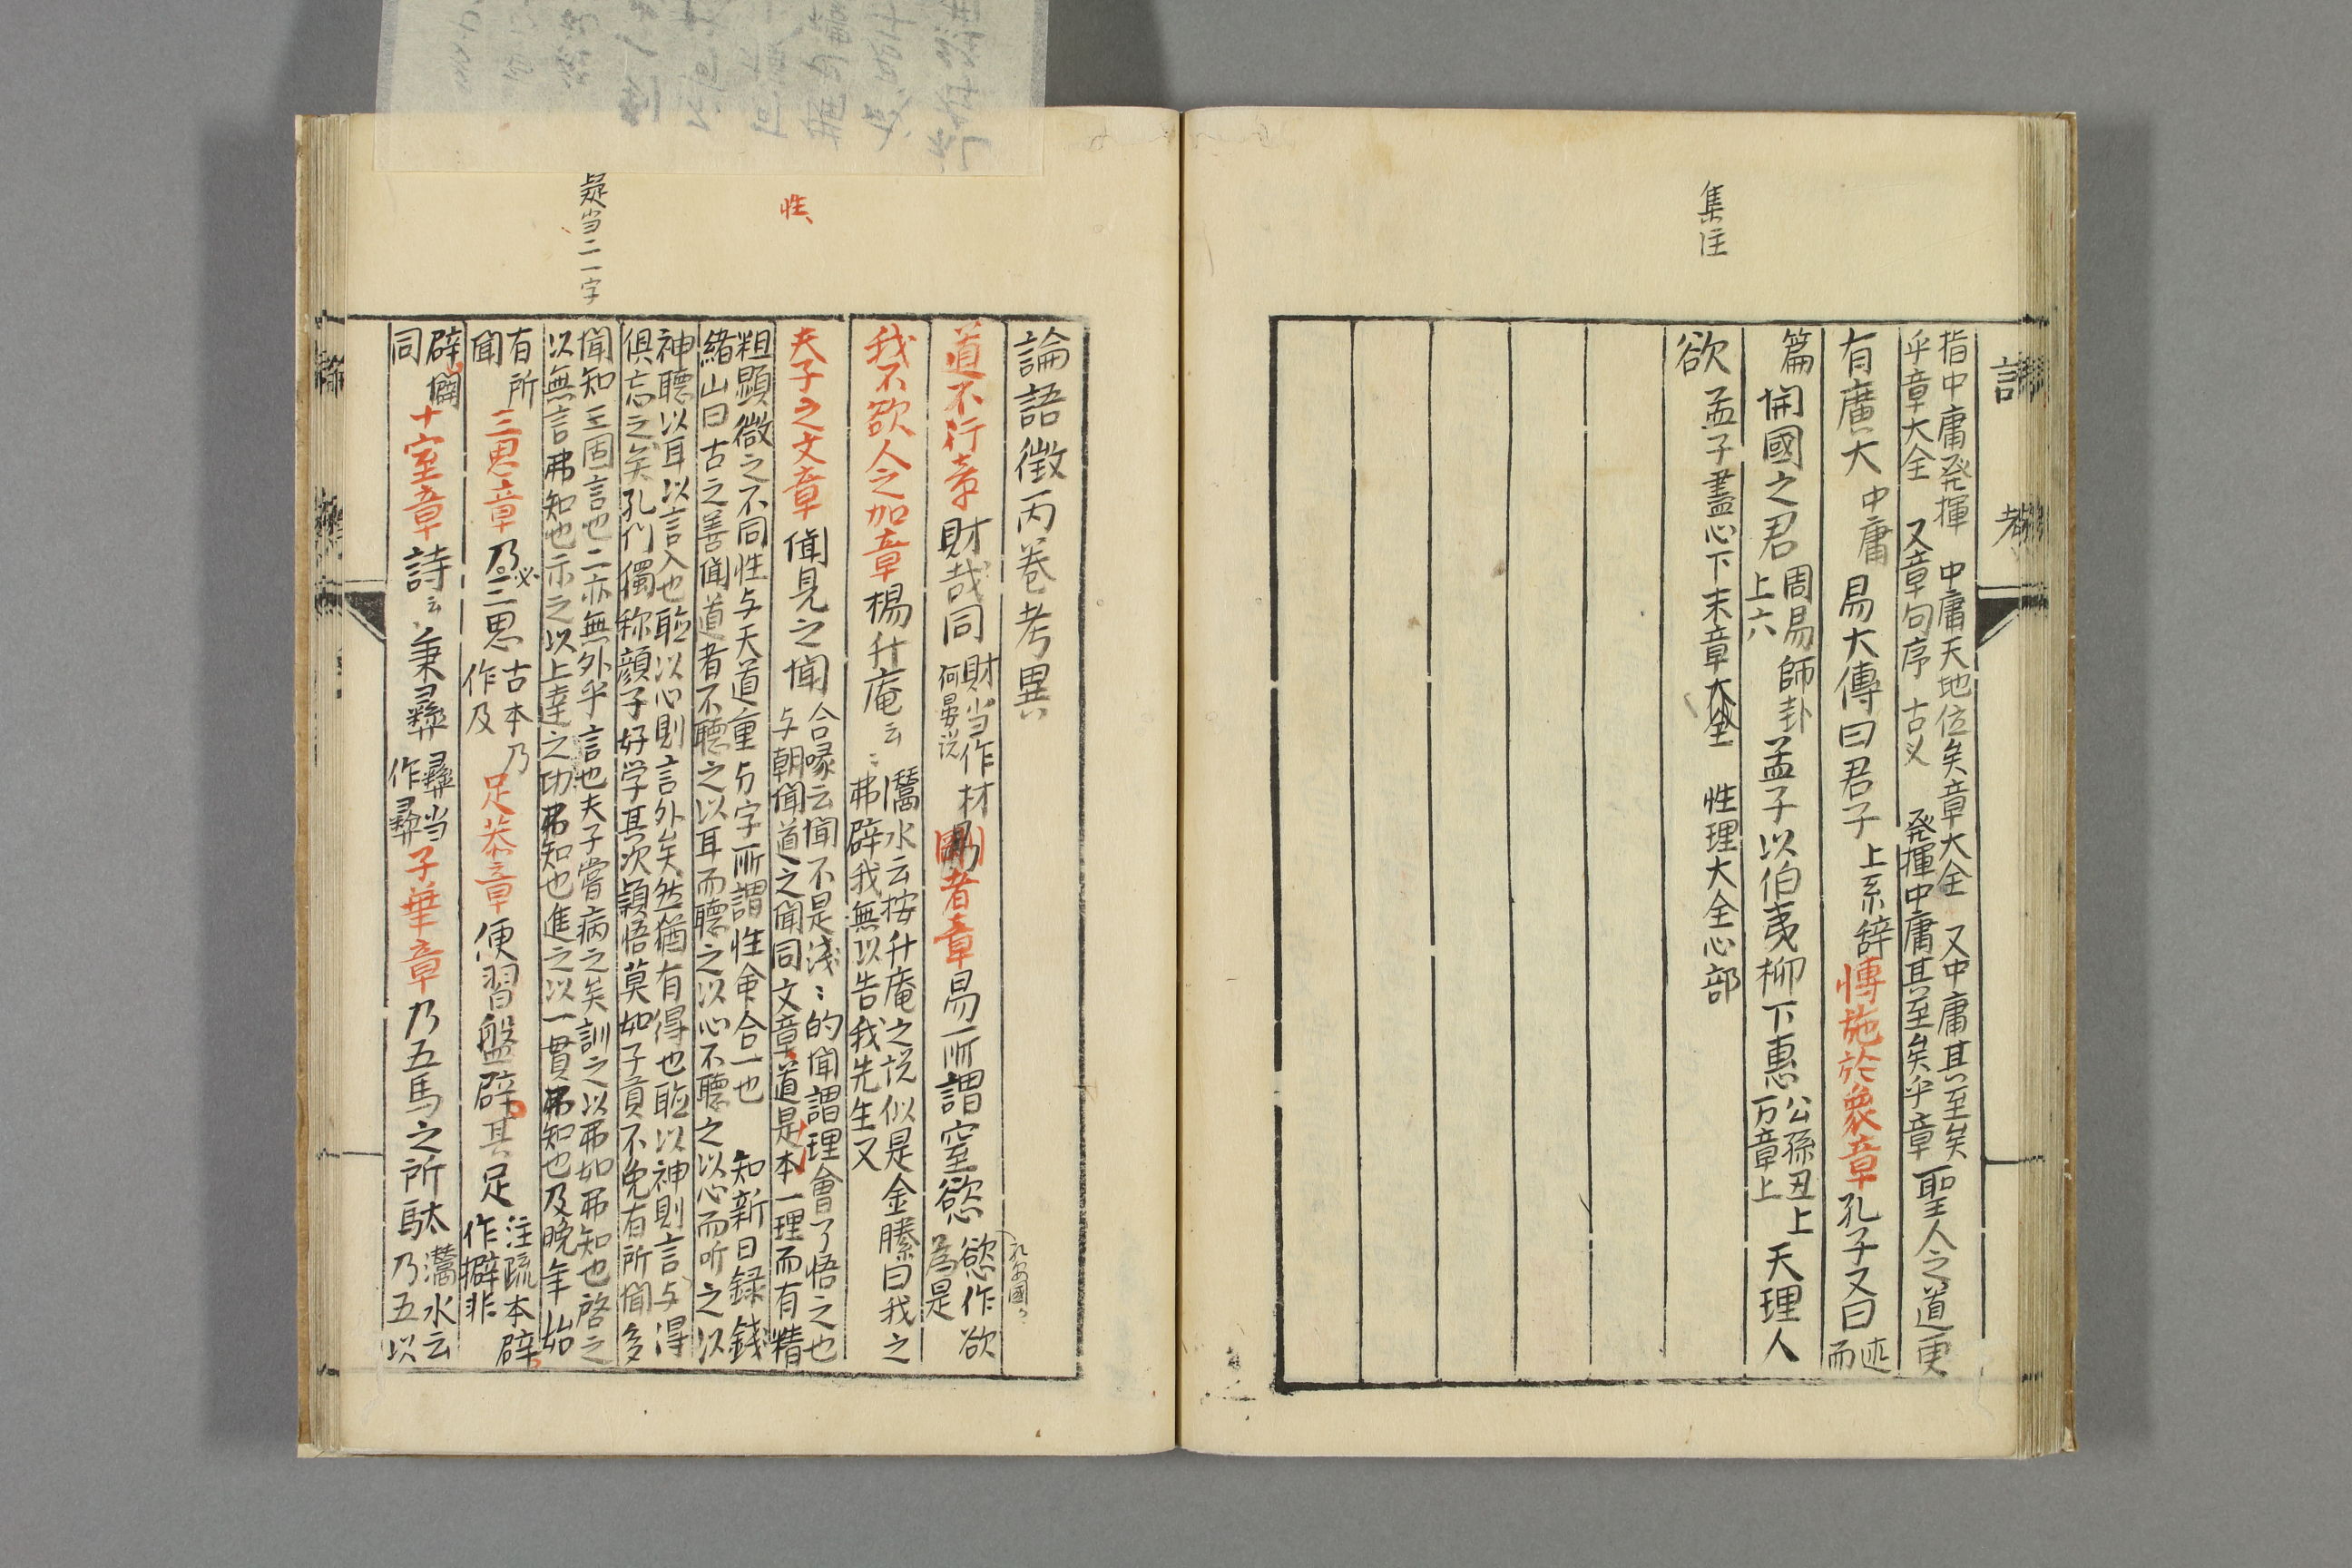 集注
指中庸発揮　中庸天地位矣章大全　又中庸其至矣
乎章大全　又章句序　古义　発揮中庸其至矣乎章
聖人之道更
有廣大
中庸
易大傳曰君子
上系辞
博施於衆章
孔子又曰
迹
而
篇
開國之君
周易師卦
上六
孟子以伯夷柳下惠
公孫丑上
万章上
天理人
欲
孟子盡心下末章大全　性理大全心部
論語徴丙巻考異
道不行章
財哉同
財当作材
何晏说
剛者章
易所謂窒慾
慾作欲
為是
孔安國
我不欲人之加章
楊升庵云
灊水云按升庵之说似是金縢曰我之
弗辟我無以告我先生又
性
夫子之文章
聞見之聞
合喙云聞不是浅〻的聞謂理會了悟之也
与朝聞道之聞同文章道是本一理而有精
粗顯微之不同性与天道重与字所謂性命合一也　知新日録錢
緒山曰古之善聞道者不聽之以耳而聽之以心不聽之以心而听之以
神聽以耳以言入也聆以心則言外矣然猶有得也聆以神則言与得
俱忘之矣孔门獨称顔子好学其次穎悟莫如子貢不免有所聞多
疑当二一字
聞知二固言也二亦無外乎言也夫子嘗病之矣訓之以弗如弗知也啓之
以無言弗知也示之以上達之功弗知也進之以一貫弗知也及晚年始
有所
聞
三思章
乃必三思
古本乃
作及
足恭章
便習盤辟其足
注疏本辟
作擗非
辟僻
同
十室章
詩云秉彛
彛当
作彜
子華章
乃五馬之所駄
灊水云
乃五以